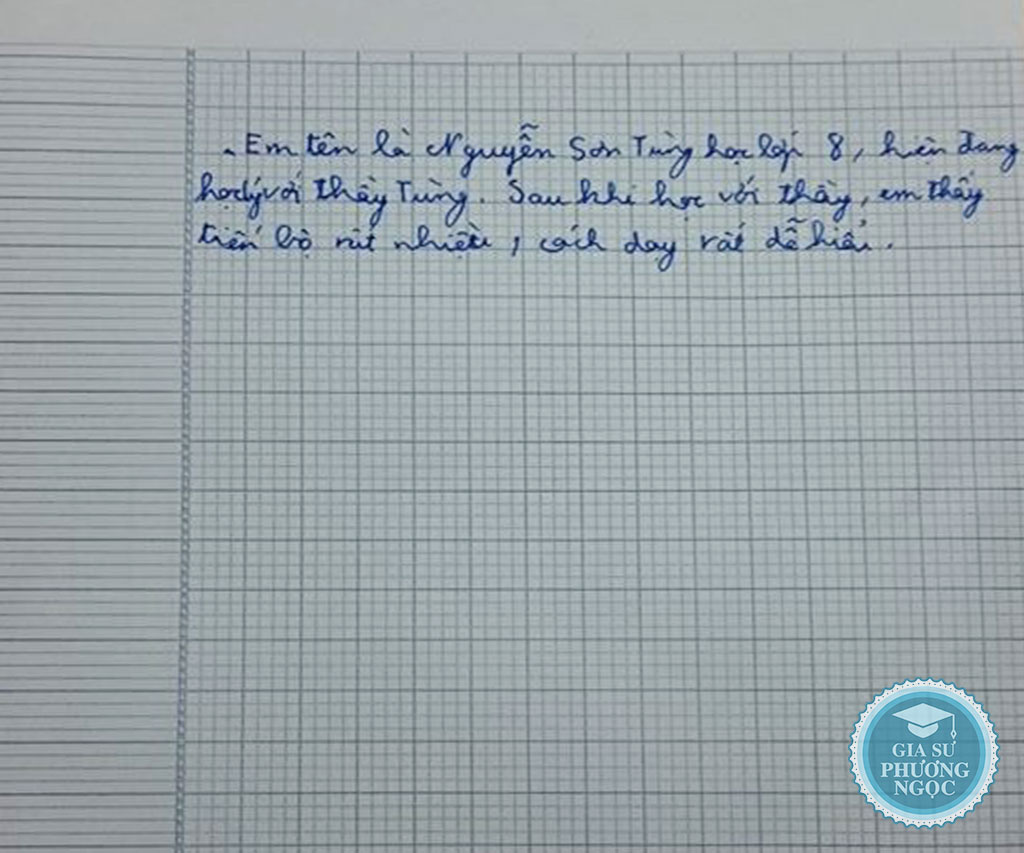 Em tên là Nguyễn Sơn Tùng học lớp 8, hiện đang
học lý với thầy Tùng. Sau khi học với thầy, em thấy
tiến bộ rất nhiều, cách dạy rất dễ hiểu.
GIA SƯ
PHƯƠNG
NGỌC